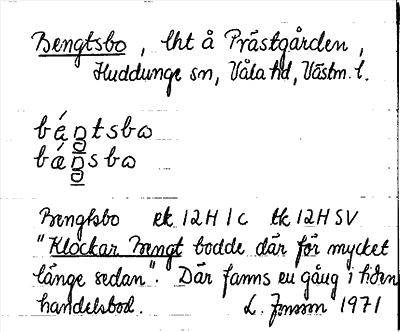 Bengtsbo, lht å Prästgården,
Huddunge sn, Våla hd, Västm. l.
Bengtsbo ek 12H 1c tk 12H SV
"Klockar Bengt bodde där för mycket
länge sedan". Där fanns en gång i tiden
handelsbod. L. Jonsson 1971